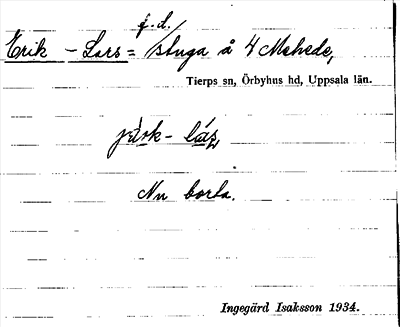 f.d.
Erik-Lars=/stuga å 4 Mehede,
Tierps sn, Örbyhus hd, Uppsala län.
Nu borta.
Ingegärd Isaksson 1934.